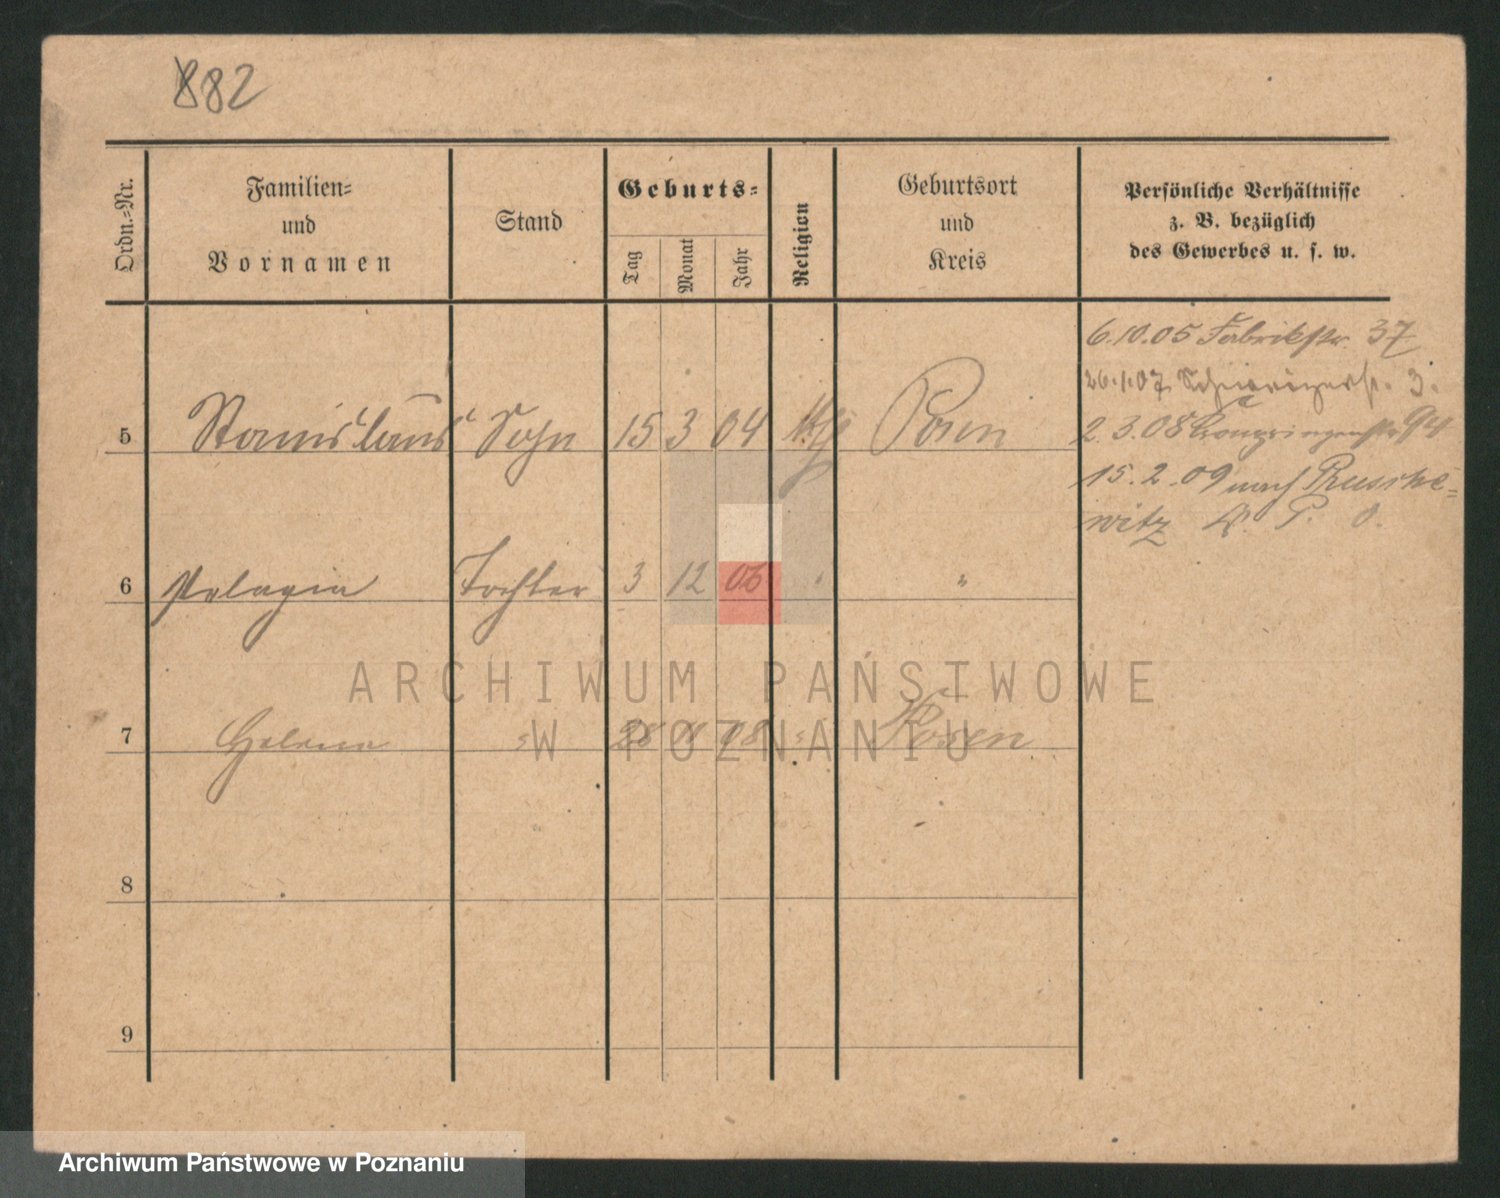 882
Ordn.=Nr.
Familien=
und
Vornamen
Stand
Geburts=
Tag
Monat
Jahr
Religion
Geburtsort
und
Kreis
Persönliche Verhältnisse
z. B. bezüglich
des Gewerbes u. s. w.
6.10.05 Fabrikstr. 37
26.1.07 3.
2.3.08 Kronprinzenstr. 94
15.2.09 nach Ruschke=
witz
5 Stanislaus Sohn 15 3 04 kth Posen
6 Pelagia Tochter 3 12 06 " "
7 Helena " 28 Posen
8
9
ARCHIWUM PAŃSTWOWE
W POZNANIU
Archiwum Państwowe w Poznaniu